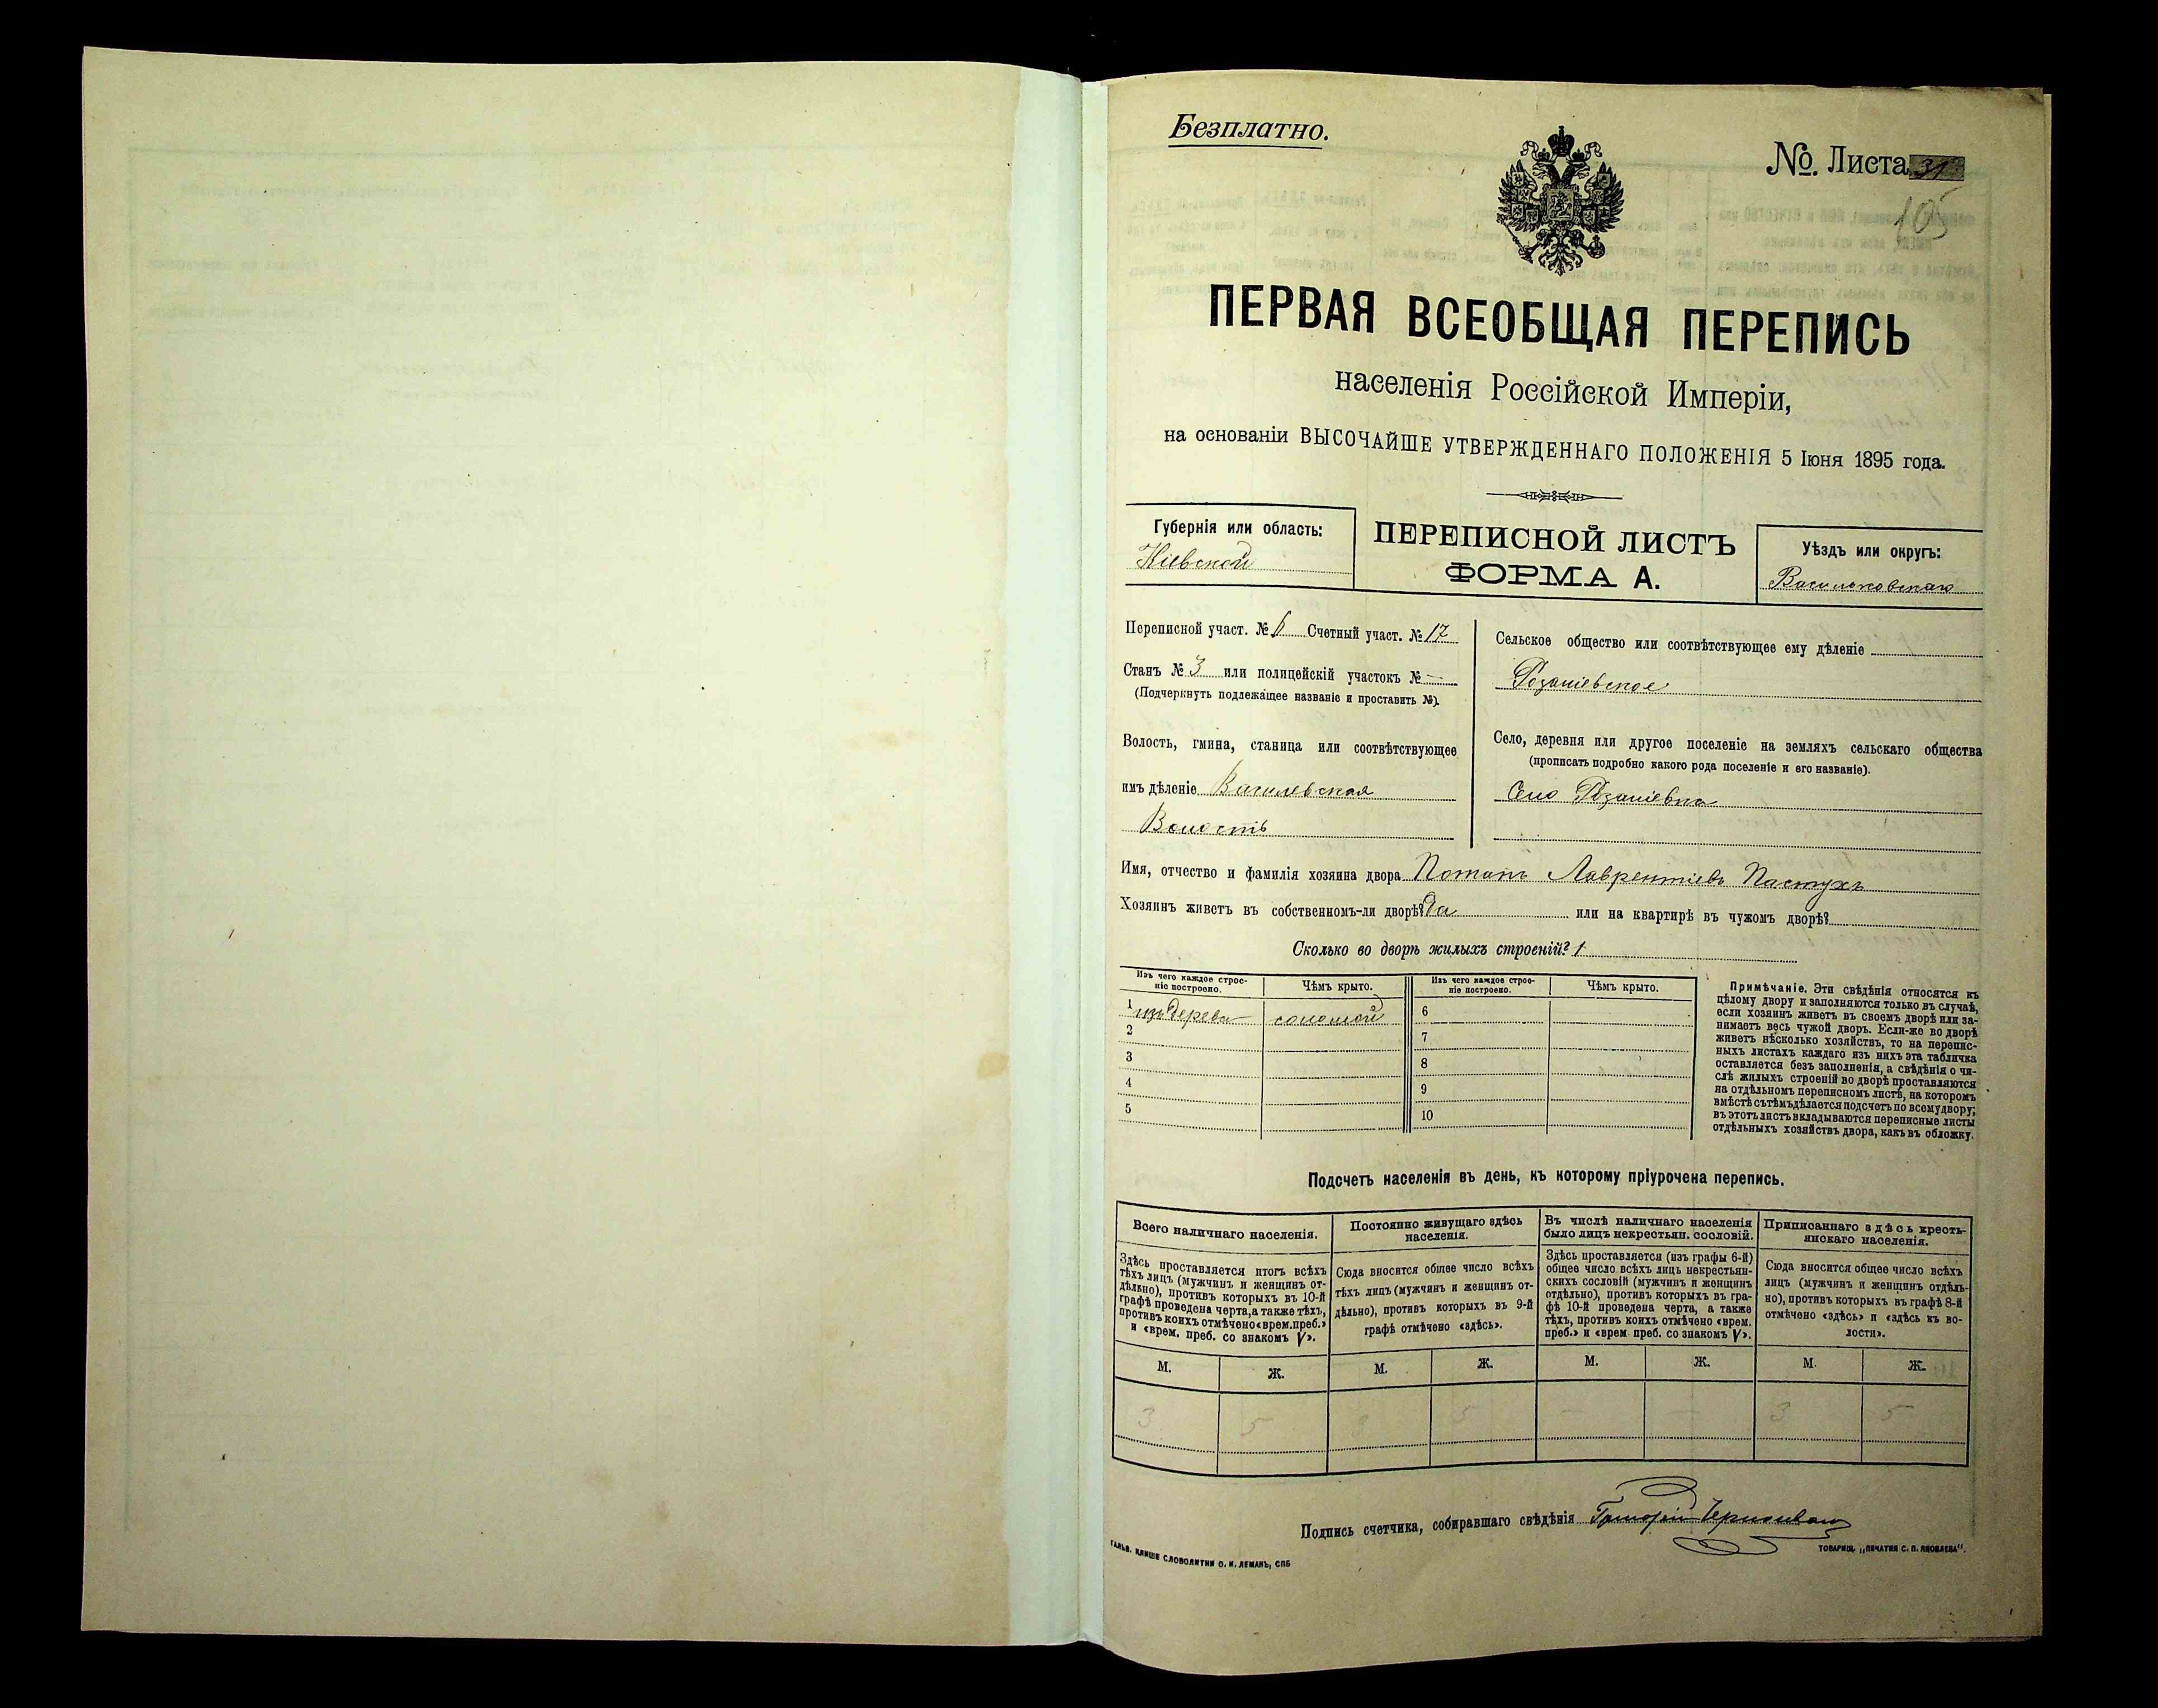 Безплатно.
№. Листа 31
105
ПЕРВАЯ ВСЕОБЩАЯ ПЕРЕПИСЬ
населенія Россійской Имперіи,
на основаніи ВЫСОЧАЙШЕ УТВЕРЖДЕННАГО ПОЛОЖЕНІЯ 5 Іюня 1895 года.
Губернія или область:
Кіевской
ПЕРЕПИСНОЙ ЛИСТЪ
ФОРМА А.
Уѣздъ или округъ:
Васильковскаго
Переписной участ. № 6 Счетный участ. № 17
Станъ № 3 или полицейскій участокъ № —
(Подчеркнуть подлежащее названіе и проставить №).
Волость, гмина, станица или соотвѣтствующее
имъ дѣленіе
Волость
Сельское общество или соотвѣтствующее ему дѣленіе
Село, деревня или другое поселеніе на земляхъ сельскаго общества
(прописать подробно какого рода поселеніе и его названіе).
Село
Имя, отчество и фамилія хозяина двора Потапъ Лаврентіевъ Пастухъ
Хозяинъ живетъ въ собственномъ-ли дворѣ? Да или на квартирѣ въ чужомъ дворѣ?
Сколько во дворѣ жилыхъ строеній? 1
Изъ чего каждое строе-
ніе построено.
Чѣмъ крыто.
Изъ чего каждое строе-
ніе построено.
Чѣмъ крыто.
1 изъ дерева соломой 6
2 7
3 8
4 9
5 10
Примѣчаніе. Эти свѣдѣнія относятся къ
цѣлому двору и заполняются только въ случаѣ,
если хозяинъ живетъ въ своемъ дворѣ или за-
нимаетъ весь чужой дворъ. Если-же во дворѣ
живетъ нѣсколько хозяйствъ, то на перепис-
ныхъ листахъ каждаго изъ нихъ эта табличка
оставляется безъ заполненія, а свѣдѣнія о чи-
слѣ жилыхъ строеній во дворѣ проставляются
на отдѣльномъ переписномъ листѣ, на которомъ
вмѣстѣ съ тѣмъ дѣлается подсчетъ по всему двору;
въ этотъ листъ вкладываются переписные листы
отдѣльныхъ хозяйствъ двора, какъ въ обложку.
Подсчетъ населенія въ день, къ которому пріурочена перепись.
Всего наличнаго населенія.
Здѣсь проставляется итогъ всѣхъ
тѣхъ лицъ (мужчинъ и женщинъ от-
дѣльно), противъ которыхъ въ 10-й
графѣ проведена черта, а также тѣхъ,
противъ коихъ отмѣчено «врем. преб.»
и «врем. преб. со знакомъ V».
Постоянно живущаго здѣсь
населенія.
Сюда вносится общее число всѣхъ
тѣхъ лицъ (мужчинъ и женщинъ от-
дѣльно), противъ которыхъ въ 9-й
графѣ отмѣчено «здѣсь».
Въ числѣ наличнаго населенія
было лицъ некрестьян. сословій.
Здѣсь проставляется (изъ графы 6-й)
общее число всѣхъ лицъ некрестьян-
скихъ сословій (мужчинъ и женщинъ
отдѣльно), противъ которыхъ въ гра-
фѣ 10-й проведена черта, а также
тѣхъ, противъ коихъ отмѣчено «врем.
преб.» и «врем. преб. со знакомъ V».
Приписаннаго здѣсь кресть-
янскаго населенія.
Сюда вносится общее число всѣхъ
лицъ (мужчинъ и женщинъ отдѣль-
но), противъ которыхъ въ графѣ 8-й
отмѣчено «здѣсь» и «здѣсь къ во-
лости».
М. Ж. М. Ж. М. Ж. М. Ж.
3 5 3 5 — — 3 5
Подпись счетчика, собиравшаго свѣдѣнія Григорій
ГАЛЬВ. КЛИШЕ СЛОВОЛИТНИ О. И. ЛЕМАНЪ, СПБ
ТОВАРИЩ. „ПЕЧАТНЯ С. П. ЯКОВЛЕВА“.